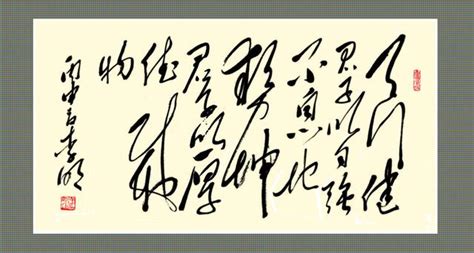 天行健
君子以自强
不息地
势坤
君子以厚
德载
物
丙申李明